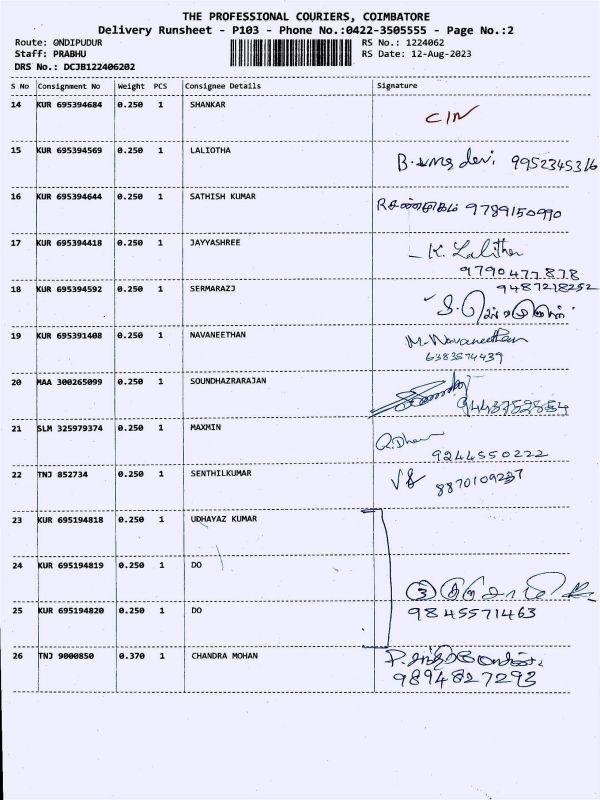 THE PROFESSIONAL COURIERS, COIMBATORE
Delivery Runsheet - P103 - Phone No.:0422-3505555 - Page No.:2
Route: ONDIPUDUR RS No.: 1224062
Staff: PRABHU RS Date: 12-Aug-2023
DRS No.: DCJB122406202
S No Consignment No Weight PCS Consignee Details Signature
14 KUR 695394684 0.250 1 SHANKAR
15 KUR 695394569 0.250 1 LALIOTHA
B. uma devi 9952345316
16 KUR 695394644 0.250 1 SATHISH KUMAR
9789150990
17 KUR 695394418 0.250 1 JAYYASHREE
K. Lalitha
9790477878
18 KUR 695394592 0.250 1 SERMARAZJ 9487218252
19 KUR 695391408 0.250 1 NAVANEETHAN M. Navaneethan
6383674439
20 MAA 300265099 0.250 1 SOUNDHAZRARAJAN
21 SLM 325979374 0.250 1 MAXMIN
9244550222
22 TNJ 852734 0.250 1 SENTHILKUMAR
8870109237
23 KUR 695194818 0.250 1 UDHAYAZ KUMAR
24 KUR 695194819 0.250 1 DO
3
25 KUR 695194820 0.250 1 DO 9845571463
26 TNJ 9000850 0.370 1 CHANDRA MOHAN
9894827293